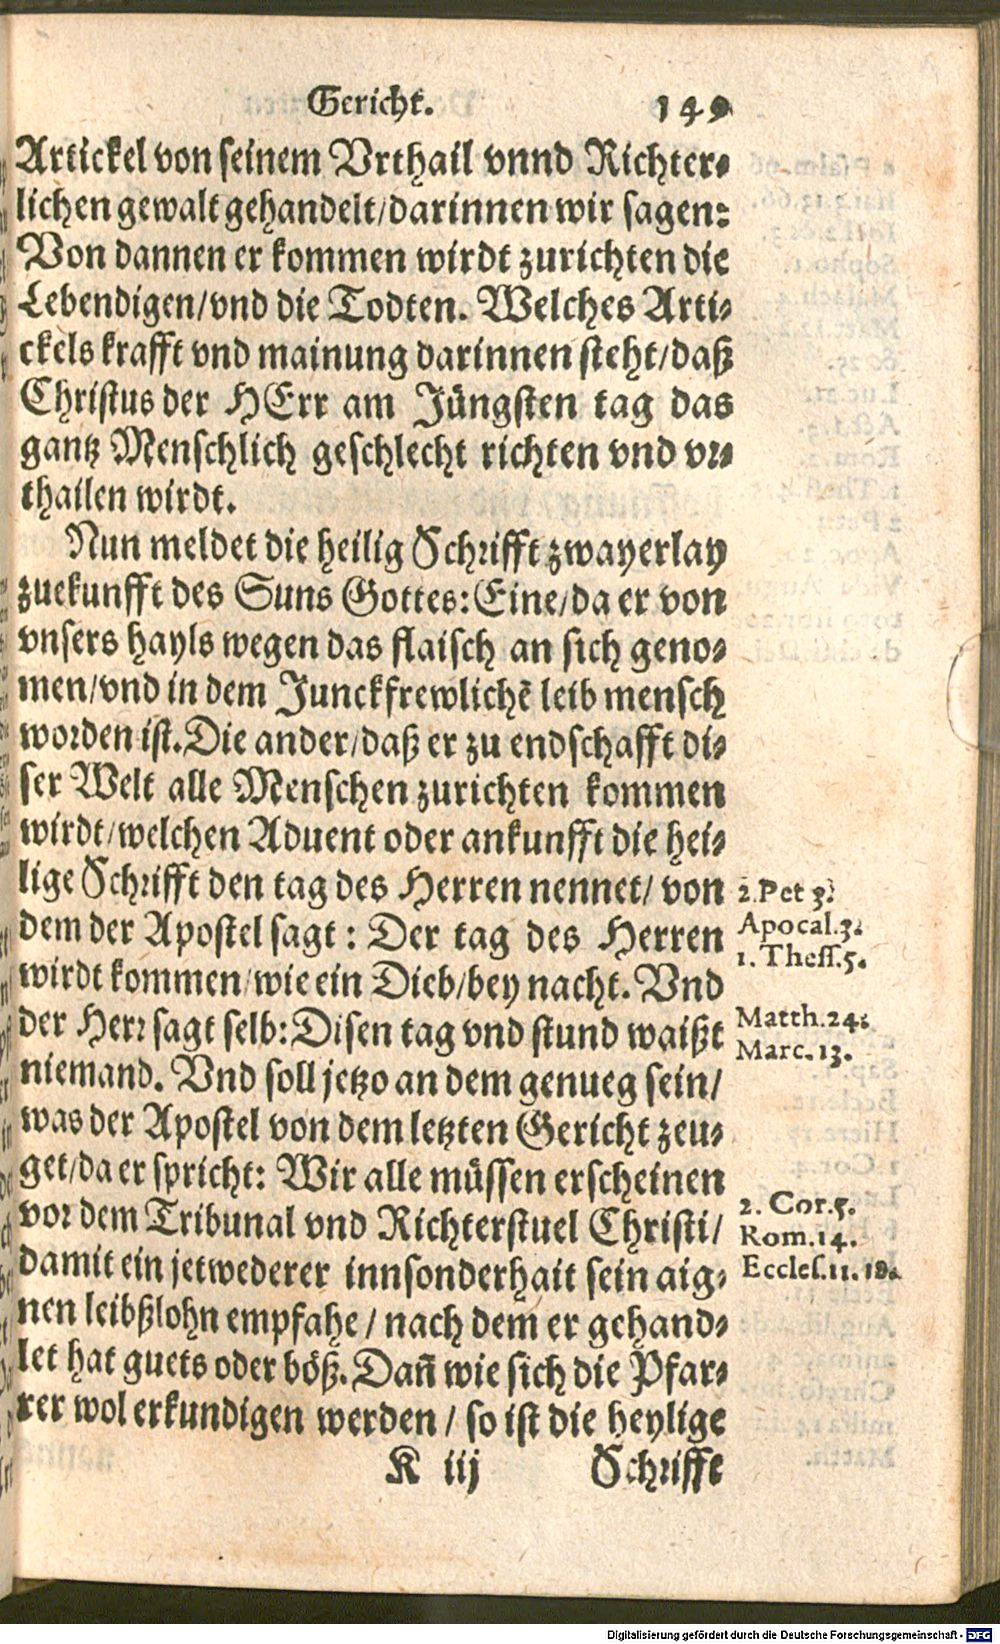 Gericht. 149
Artickel von seinem Vrthail vnnd Richter-
lichen gewalt gehandelt/darinnen wir sagen:
Von dannen er kommen wirdt zurichten die
Lebendigen/vnd die Todten. Welches Arti-
ckels krafft vnd mainung darinnen steht/daß
Christus der HErr am Jüngsten tag das
gantz Menschlich geschlecht richten vnd vr-
thailen wirdt.
Nun meldet die heilig Schrifft zwayerlay
zuekunfft des Suns Gottes: Eine/da er von
vnsers hayls wegen das flaisch an sich geno-
men/vnd in dem Junckfrewlichẽ leib mensch
worden ist. Die ander/daß er zu endschafft di-
ser Welt alle Menschen zurichten kommen
wirdt/welchen Aduent oder ankunfft die hei-
lige Schrifft den tag des Herren nennet/ von
dem der Apostel sagt: Der tag des Herren
wirdt kommen/wie ein Dieb/bey nacht. Vnd
der Herr sagt selb: Disen tag vnd stund waißt
niemand. Vnd soll jetzo an dem genueg sein/
was der Apostel von dem letzten Gericht zeu-
get/da er spricht: Wir alle müssen erscheinen
vor dem Tribunal vnd Richterstuel Christi/
damit ein jetwederer innsonderhait sein aig-
nen leibßlohn empfahe/ nach dem er gehand-
let hat guets oder böß. Dañ wie sich die Pfar-
rer wol erkundigen werden/ so ist die heylige
K iij Schrifft
2.Pet 3.
Apocal.3.
1.Thess.5.
Matth.24.
Marc.13.
2. Cor.5.
Rom.14.
Eccles.11.12.
Digitalisierung gefördert durch die Deutsche Forschungsgemeinschaft - DFG